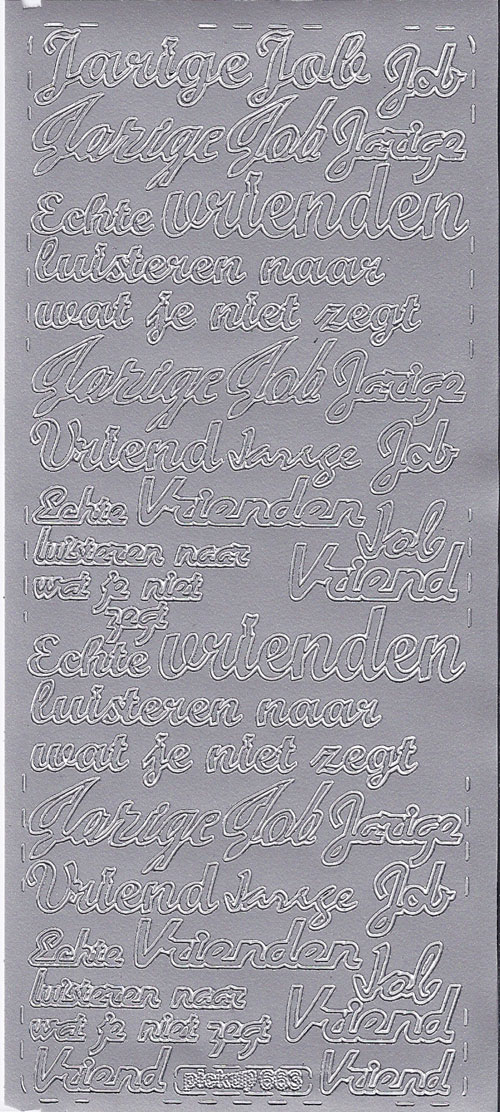 Jarige Job Job
Jarige Job Jarige
Echte vrienden
luisteren naar
wat je niet zegt
Jarige Job Jarige
Vriend Jarige Job
Echte Vrienden Job
luisteren naar Vriend
wat je niet
zegt
Echte vrienden
luisteren naar
wat je niet zegt
Jarige Job Jarige
Vriend Jarige Job
Echte Vrienden Job
luisteren naar
wat je niet zegt Vriend
Vriend pickup 663 Vriend